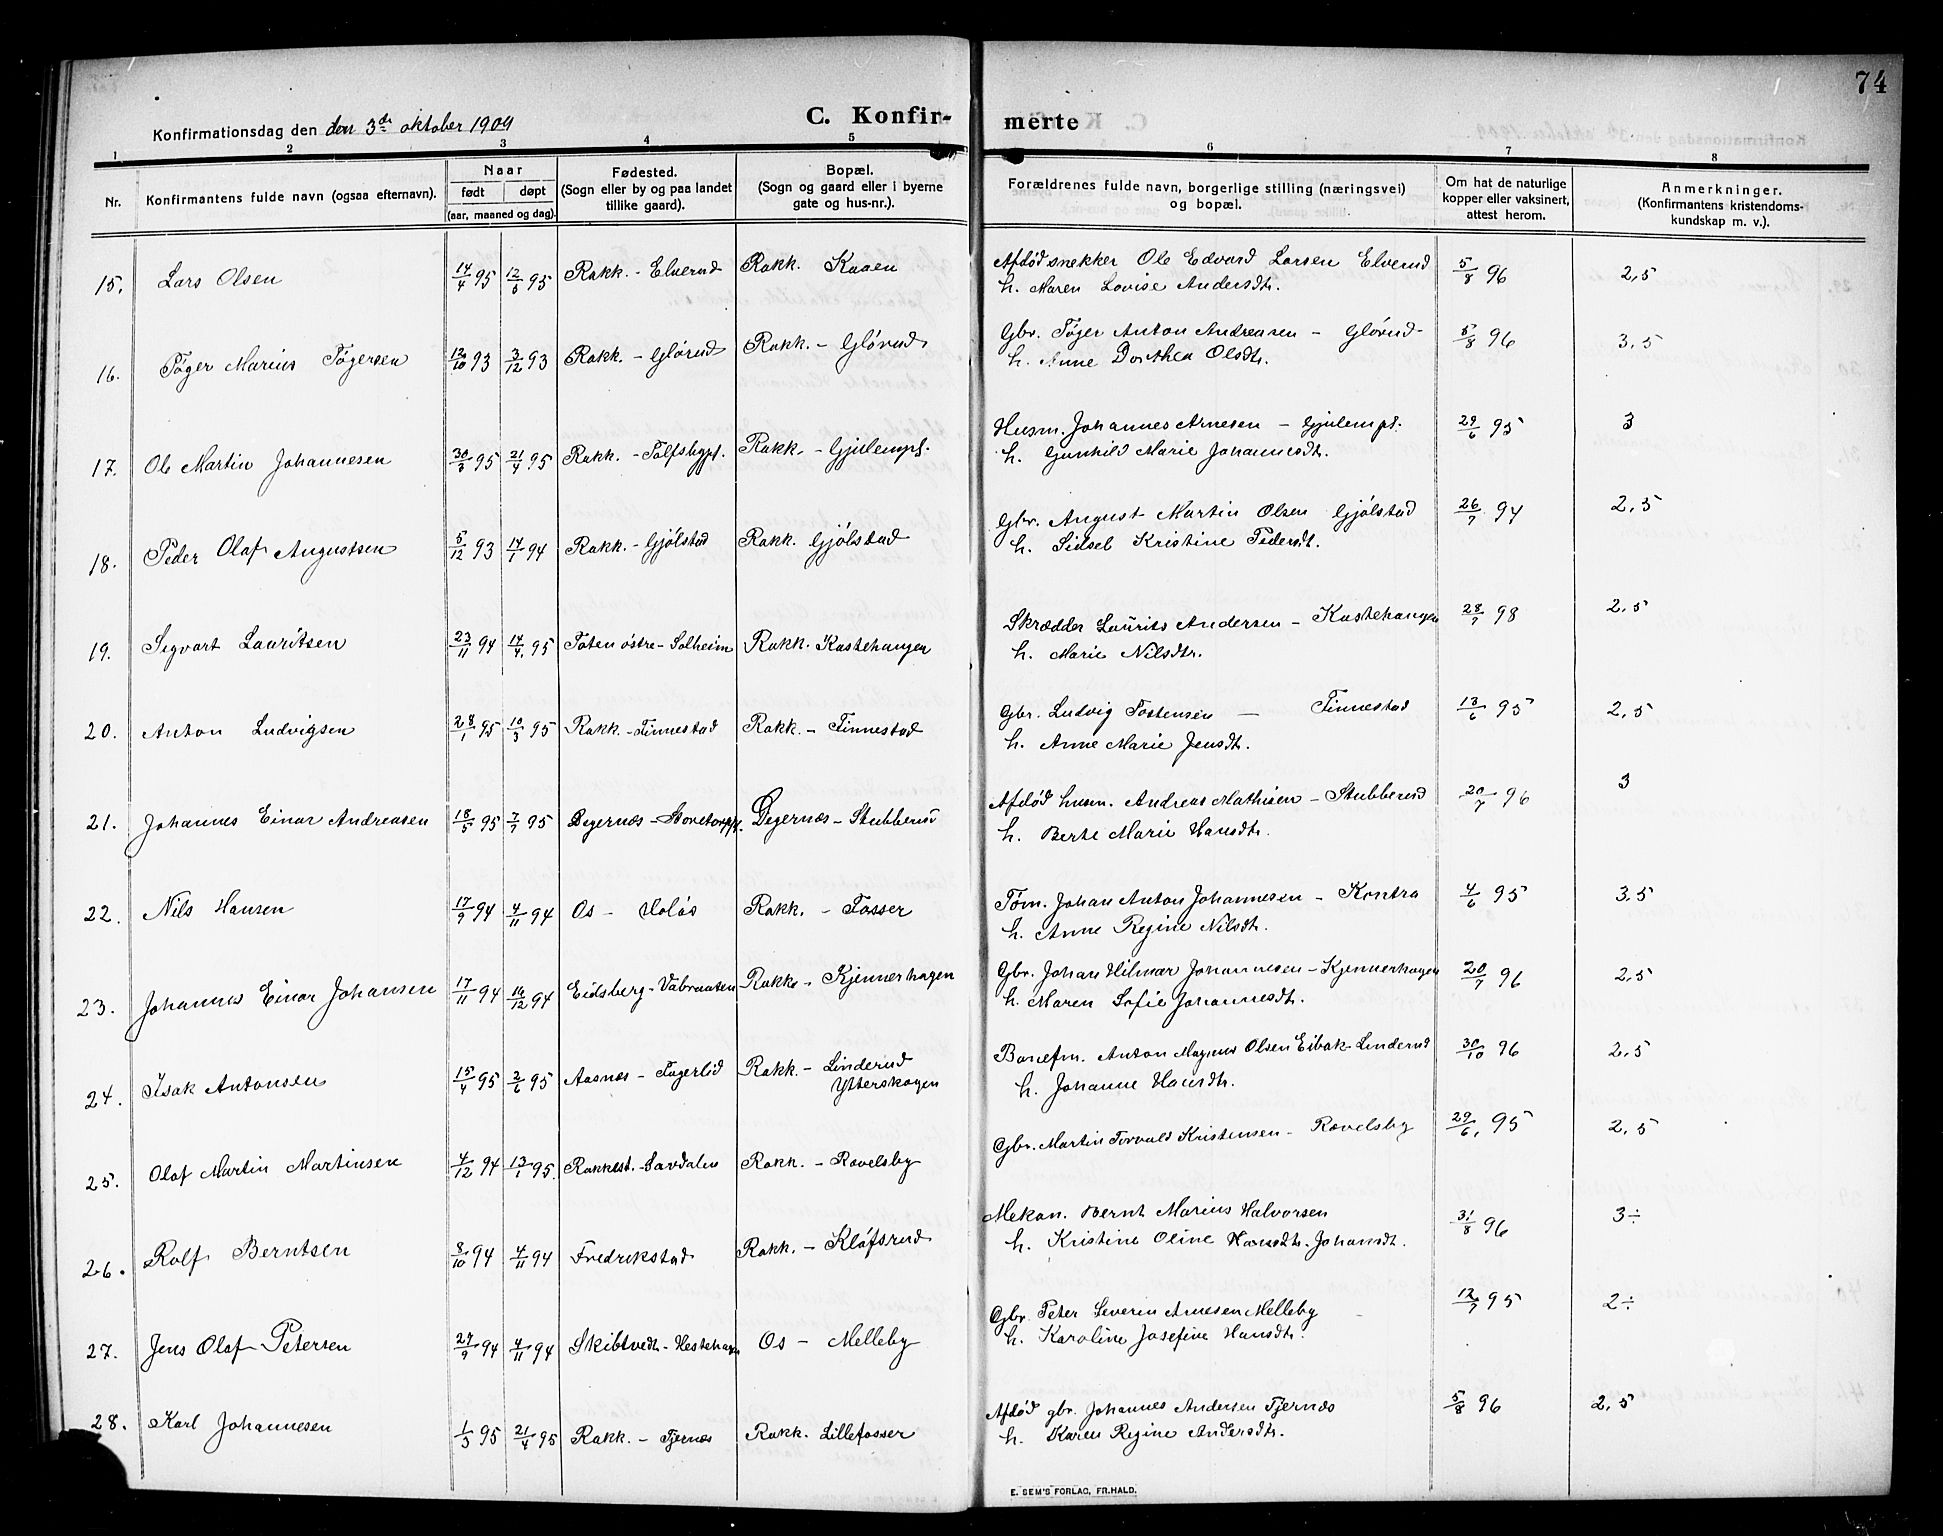 74
Konfirmationsdag den den 3de oktober 1909
C. Konfir- merte
1 2 3 4 5 6 7 8
Nr. Konfirmantens fulde navn (ogsaa efternavn). Naar født døpt (aar, maaned og dag). Fødested. (Sogn eller by og paa landet tillike gaard). Bopæl. (Sogn og gaard eller i byerne gate og hus-nr.). Forældrenes fulde navn, borgerlige stilling (næringsvei) og bopæl. Om hat de naturlige kopper eller vaksinert, attest herom. Anmerkninger. (Konfirmantens kristendoms- kundskap m. v.).
15. Lars Olsen 14/4 95 12/5 95 Rakk. - Elverud Rakk. Kaaen Afdød snekker Ole Edvard Larsen Elverud 5/8 96 2,5
h. Maren Lovise Andersdtr.
16. Tøger Marius Tøgersen 12/10 93 3/12 93 Rakk. - Glørud Rakk. - Glørud Gbr. Tøger Anton Andreasen - Glørud 5/8 96 3,5
h. Anne Dorthea Olsdtr.
17. Ole Martin Johannesen 30/3 95 21/4 95 Rakk. - Tolfsbypl. Rakk. - Gjulempl. Husm. Johannes Arnesen - Gjulempl. 29/6 95 3
h. Gunhild Marie Johannesdtr.
18. Peder Olaf Augustsen 5/12 93 14/1 94 Rakk. - Gjølstad Rakk. Gjølstad Gbr. August Martin Olsen Gjølstad 26/7 94 2,5
h. Sidsel Kristine Pedersdt.
19. Sigvart Lauritsen 23/11 94 14/4 95 Toten østre - Solheim Rakk. Kastehangen Skrædder Laurits Andersen - Kastehangen 28/7 98 2,5
h. Marie Nilsdtr.
20. Anton Ludvigsen 28/1 95 10/3 95 Rakk. - Finnestad Rakk. - Finnestad Gbr. Ludvig Tostensen - Finnestad 13/6 95 2,5
h. Anne Marie Jensdtr.
21. Johannes Einar Andreasen 18/5 95 7/7 95 Degernæs - Degernæs - Stubberud Afdød husm. Andreas Mathisen - Stubberud 20/7 96 3
h. Berte Marie Hansdtr.
22. Nils Hansen 17/9 94 4/11 94 Os - Holøs Rakk. - Fosser Tøm. Johan Anton Johannesen - Kontra 4/6 95 3,5
h. Anne Regine Nilsdtr.
23. Johannes Einar Johansen 17/11 94 16/12 94 Eidsberg - Vabraaten Rakke - Kjennerhagen Gbr. Johan Hilmar Johannesen - Kjennerhagen 20/7 96 2,5
h. Maren Sofie Johannesdt.
24. Isak Antonsen 15/4 95 2/6 95 Aasnæs - Fagerlid Rakk. - Linderud Ytterskogen Banefm. Anton Magnus Olsen Eibak - Linderud 30/10 96 2,5
h. Johanne Hansdtr.
25. Olaf Martin Martinsen 4/12 94 13/1 95 Rakkest. - Savdalen Rakk. - Ravelsby Gbr. Martin Torvald Kristensen - Ravelsby 29/6 95 2,5
26. Rolf Berntsen 8/10 94 4/11 94 Fredrikstad Rakk. - Kløfsrud Mekan. Bernt Marius Halvorsen 31/8 96 3÷
h. Kristine Oline Hansdtr. Johansdt.
27. Jens Olaf Petersen 27/9 94 4/11 94 Skibtvedt - Hestehagen Os - Melleby Gbr. Peter Severin Arnesen Melleby 12/7 95 2÷
h. Karoline Josefine Hansdtr.
28. Karl Johannesen 1/3 95 21/4 95 Rakk. - Tjernæs Rakk. Lillefosser Afdød gbr. Johannes Andersen Tjernæs 5/8 96 2,5
h. Karen Regine Andersdtr.
E. SEM'S FORLAG, FR.HALD.